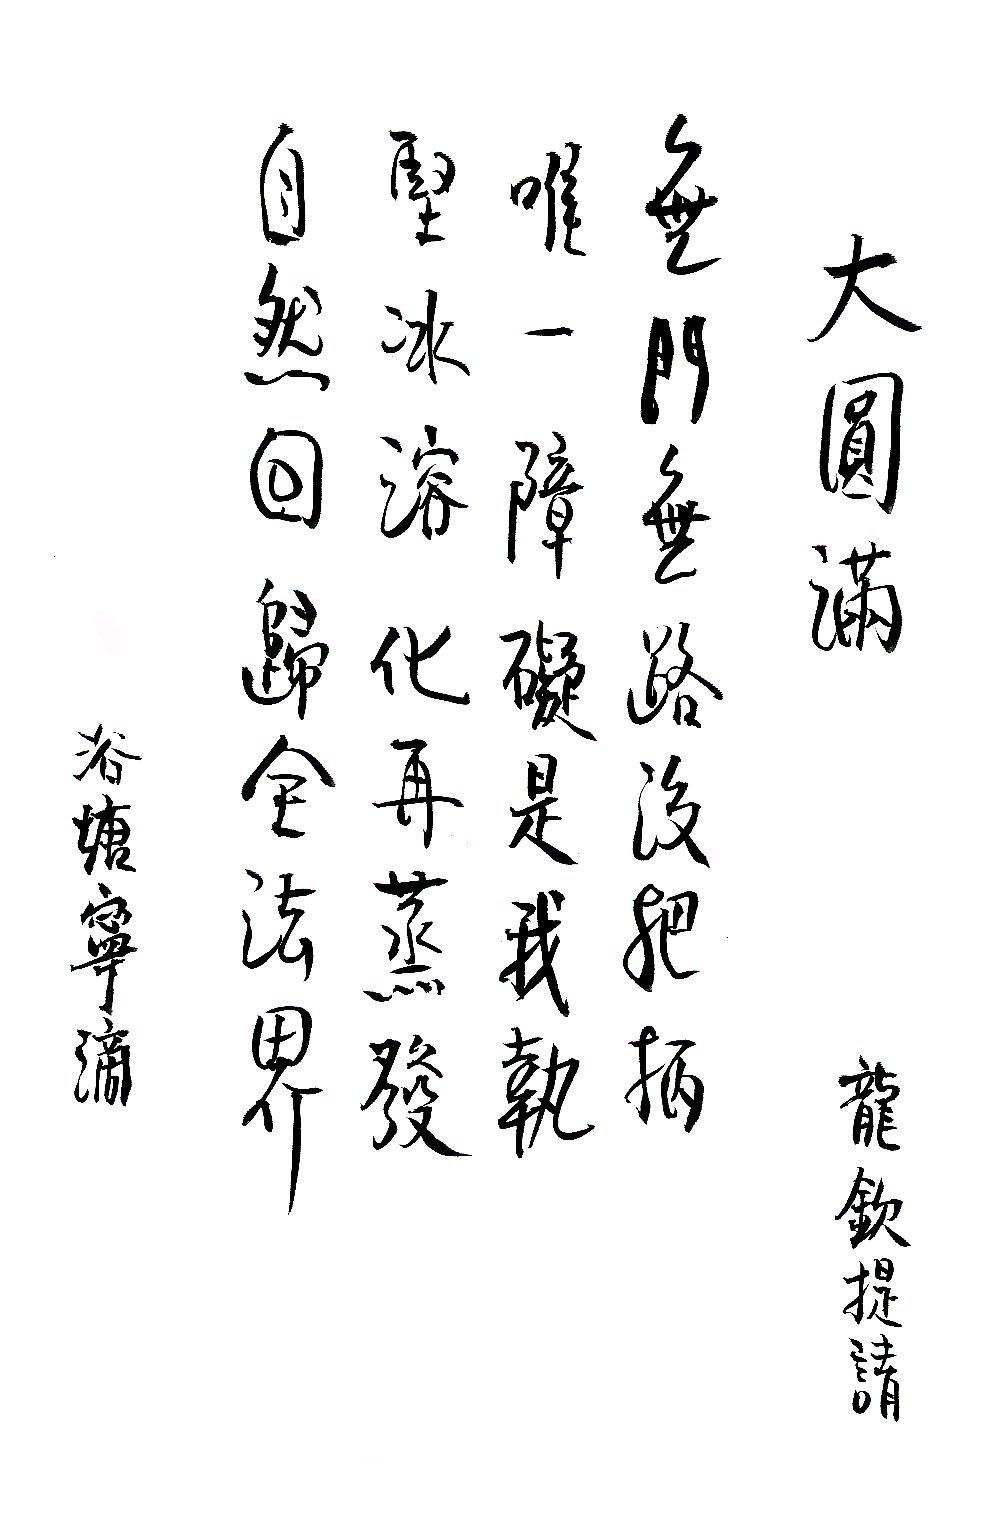 大圓滿
龍欽提請
無門無路沒把柄
唯一障礙是我執
堅冰溶化再蒸發
自然回歸全法界
浴塘寧滴